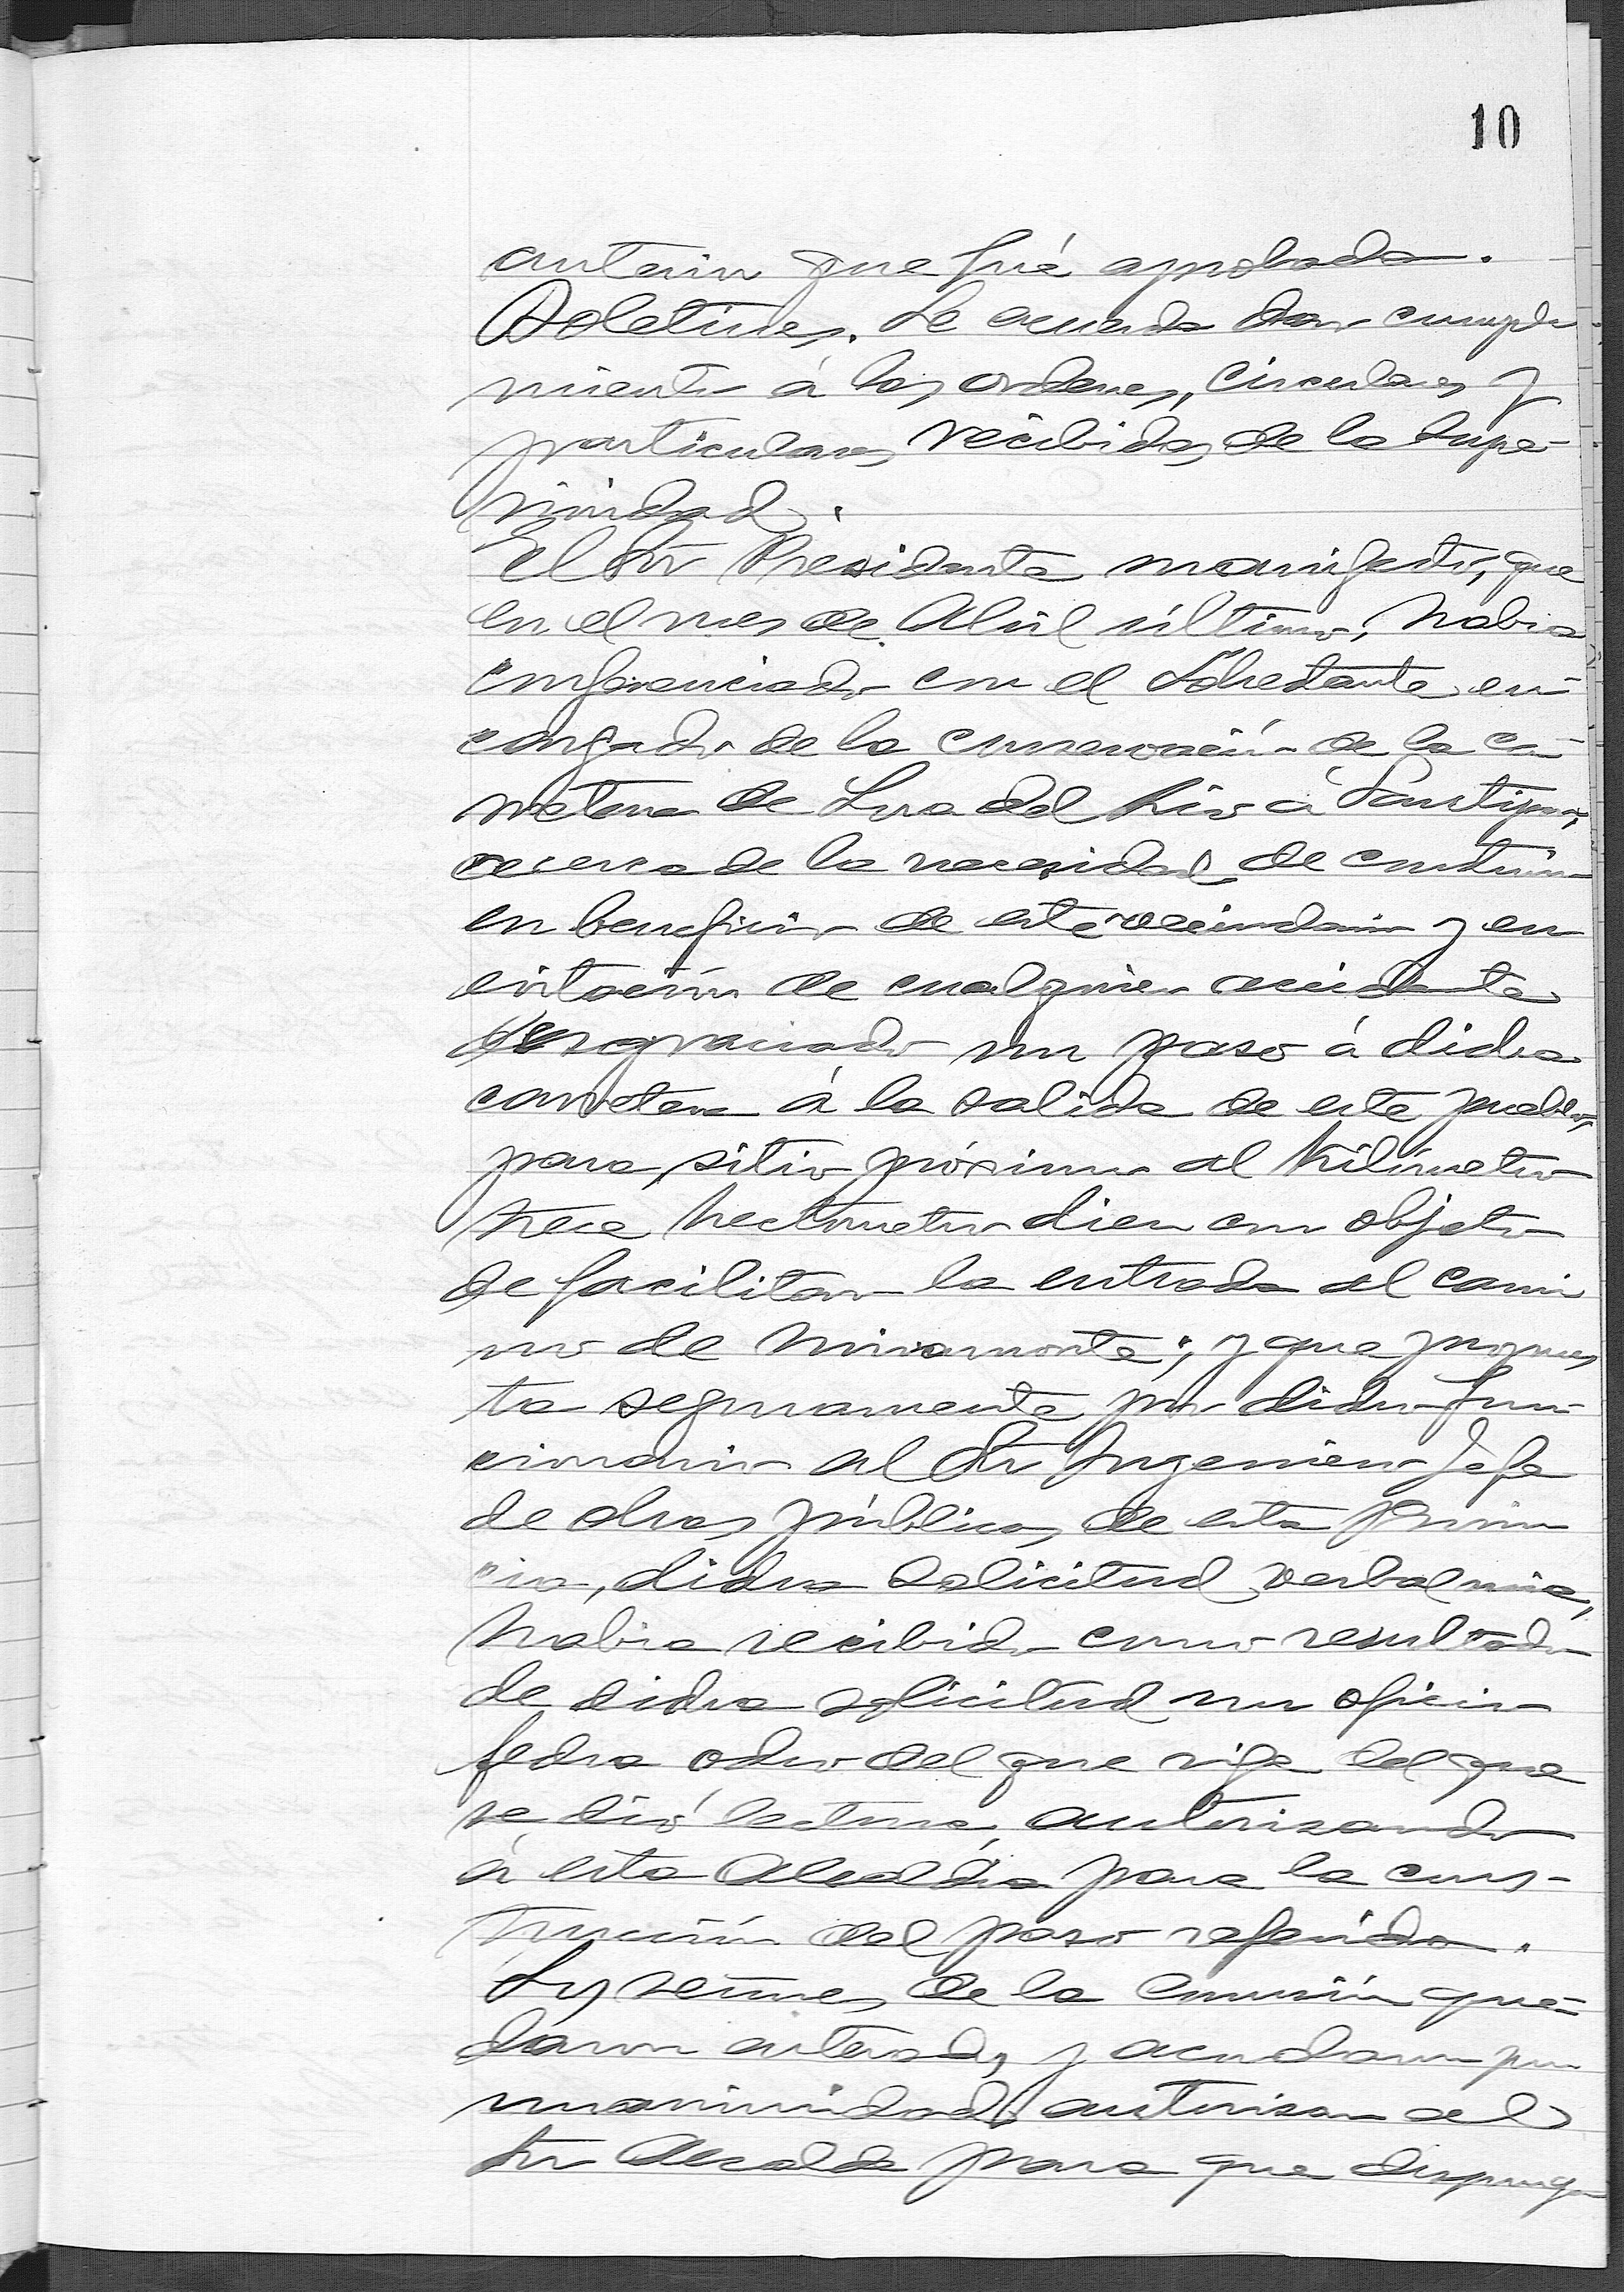 10
anterior que fué aprobada.
Boletines. Se acuerda dar cumpli
miento á las ordenes, circulares y
particulares recibidas de la supe-
rioridad.
El Sr Presidente manifestó, que
en el mes de Abril último, habia
conferenciado con el Sobrestante en-
cargado de la conservación de la ca-
rretera de Lora del Rio á Santiponce,
acerca de la necesidad de construir
en beneficio de este vecindario y en
evitación de cualquier accidente
desgraciado un paso á dicha
carretera á la salida de este pueblo,
para sitio próximo al Kilómetro
trece hectometro diez con objeto
de facilitar la entrada al cami
no de Miramonte; y que propues
ta seguramente por dicho fun-
cionario al Sr Ingeniero Jefe
de obras públicas de esta Provin
cia, dicha solicitud verbal mia,
habia recibido como resultado
de dicha solicitud un oficio
fecha ocho del que rije del que
se dió lectura, autorizando
á esta Alcaldia para la cons-
trucción del paso referido.
Los señores de la Comisión que-
daron enterados y acordaron por
unanimidad autorizar al
Sr Alcalde para que disponga